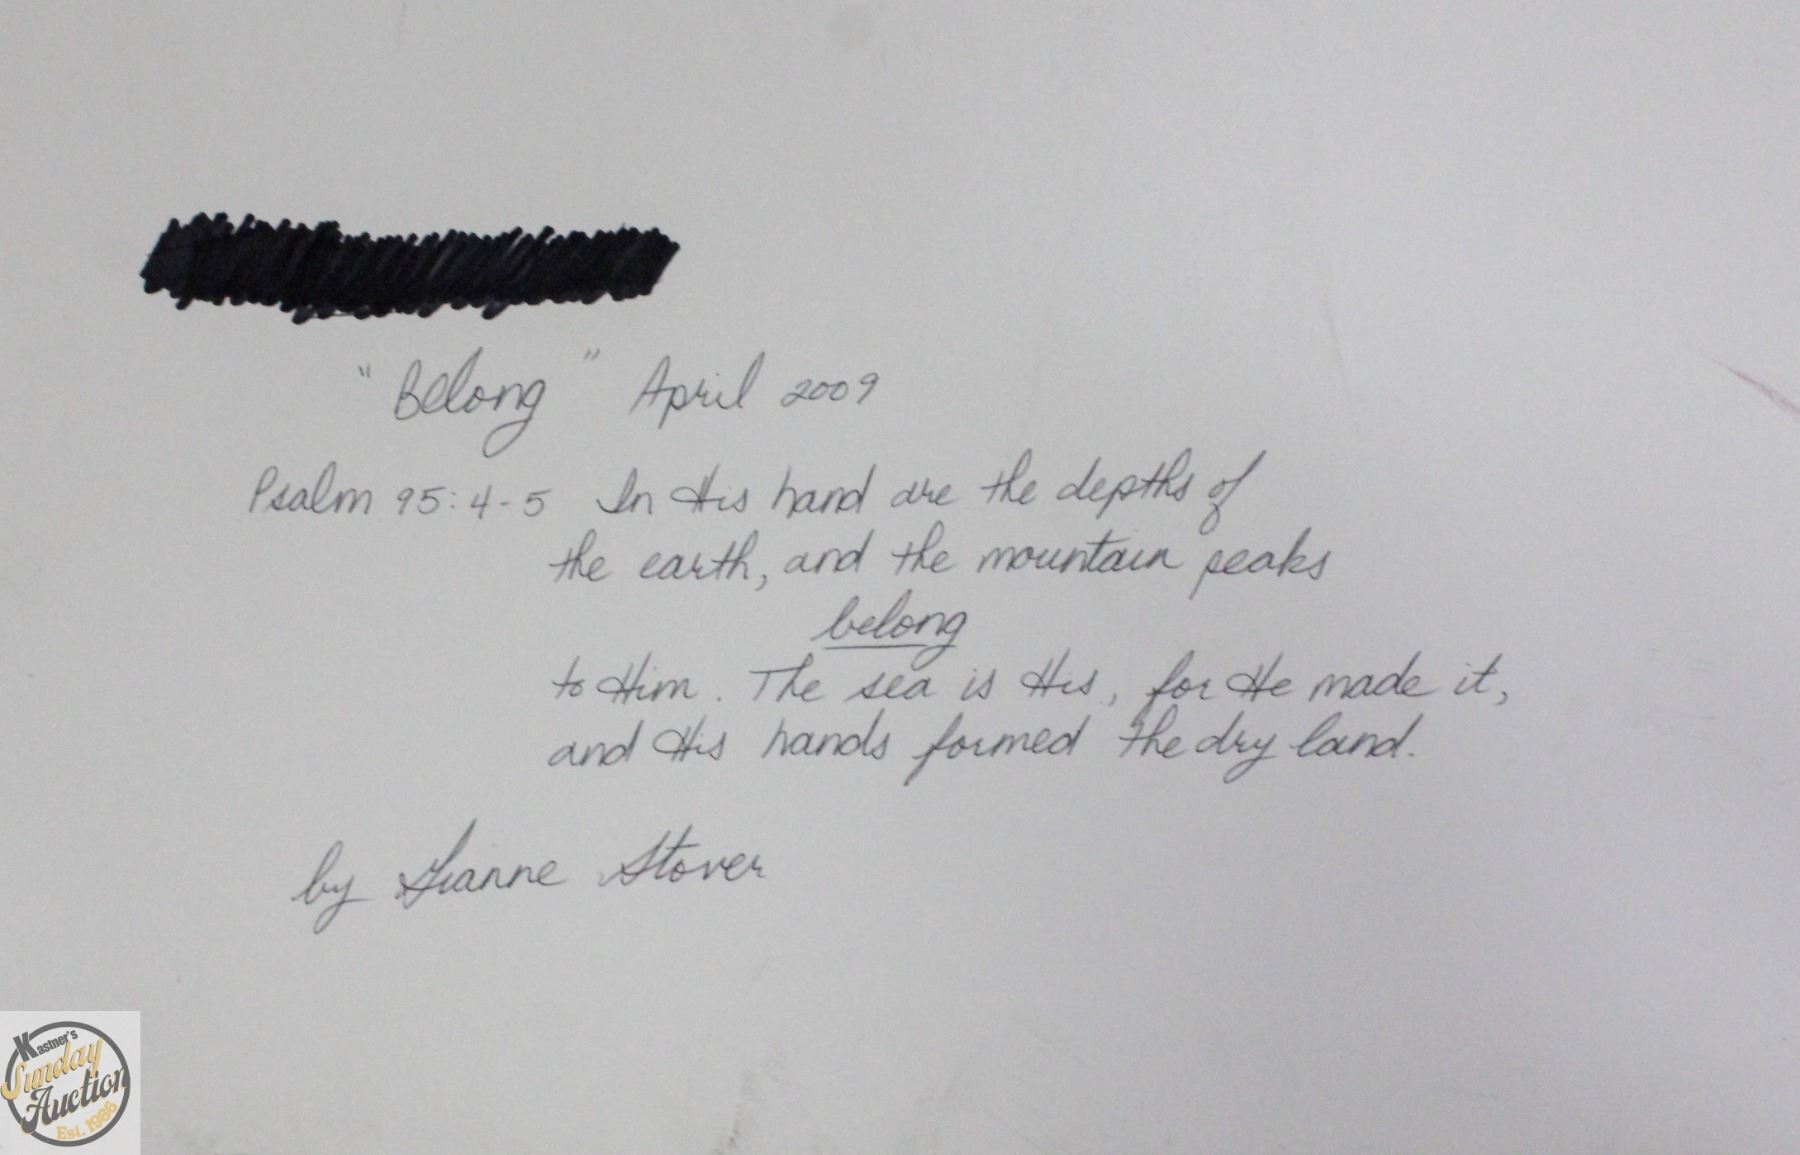 "Belong" April 2009
Psalm 95:4-5 In His hand are the depths of
the earth, and the mountain peaks
belong
to Him. The sea is His, for He made it,
and His hands formed the dry land.
by Stover
Kastner's
Sunday
Auction
Est. 1986